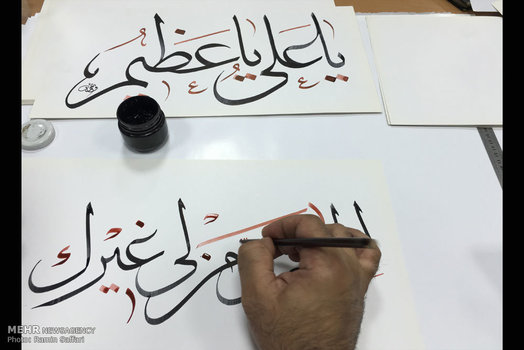 يا على يا عظيم
من لى غيرك
MEHR NEWSAGENCY
Photo: Ramin Saffari